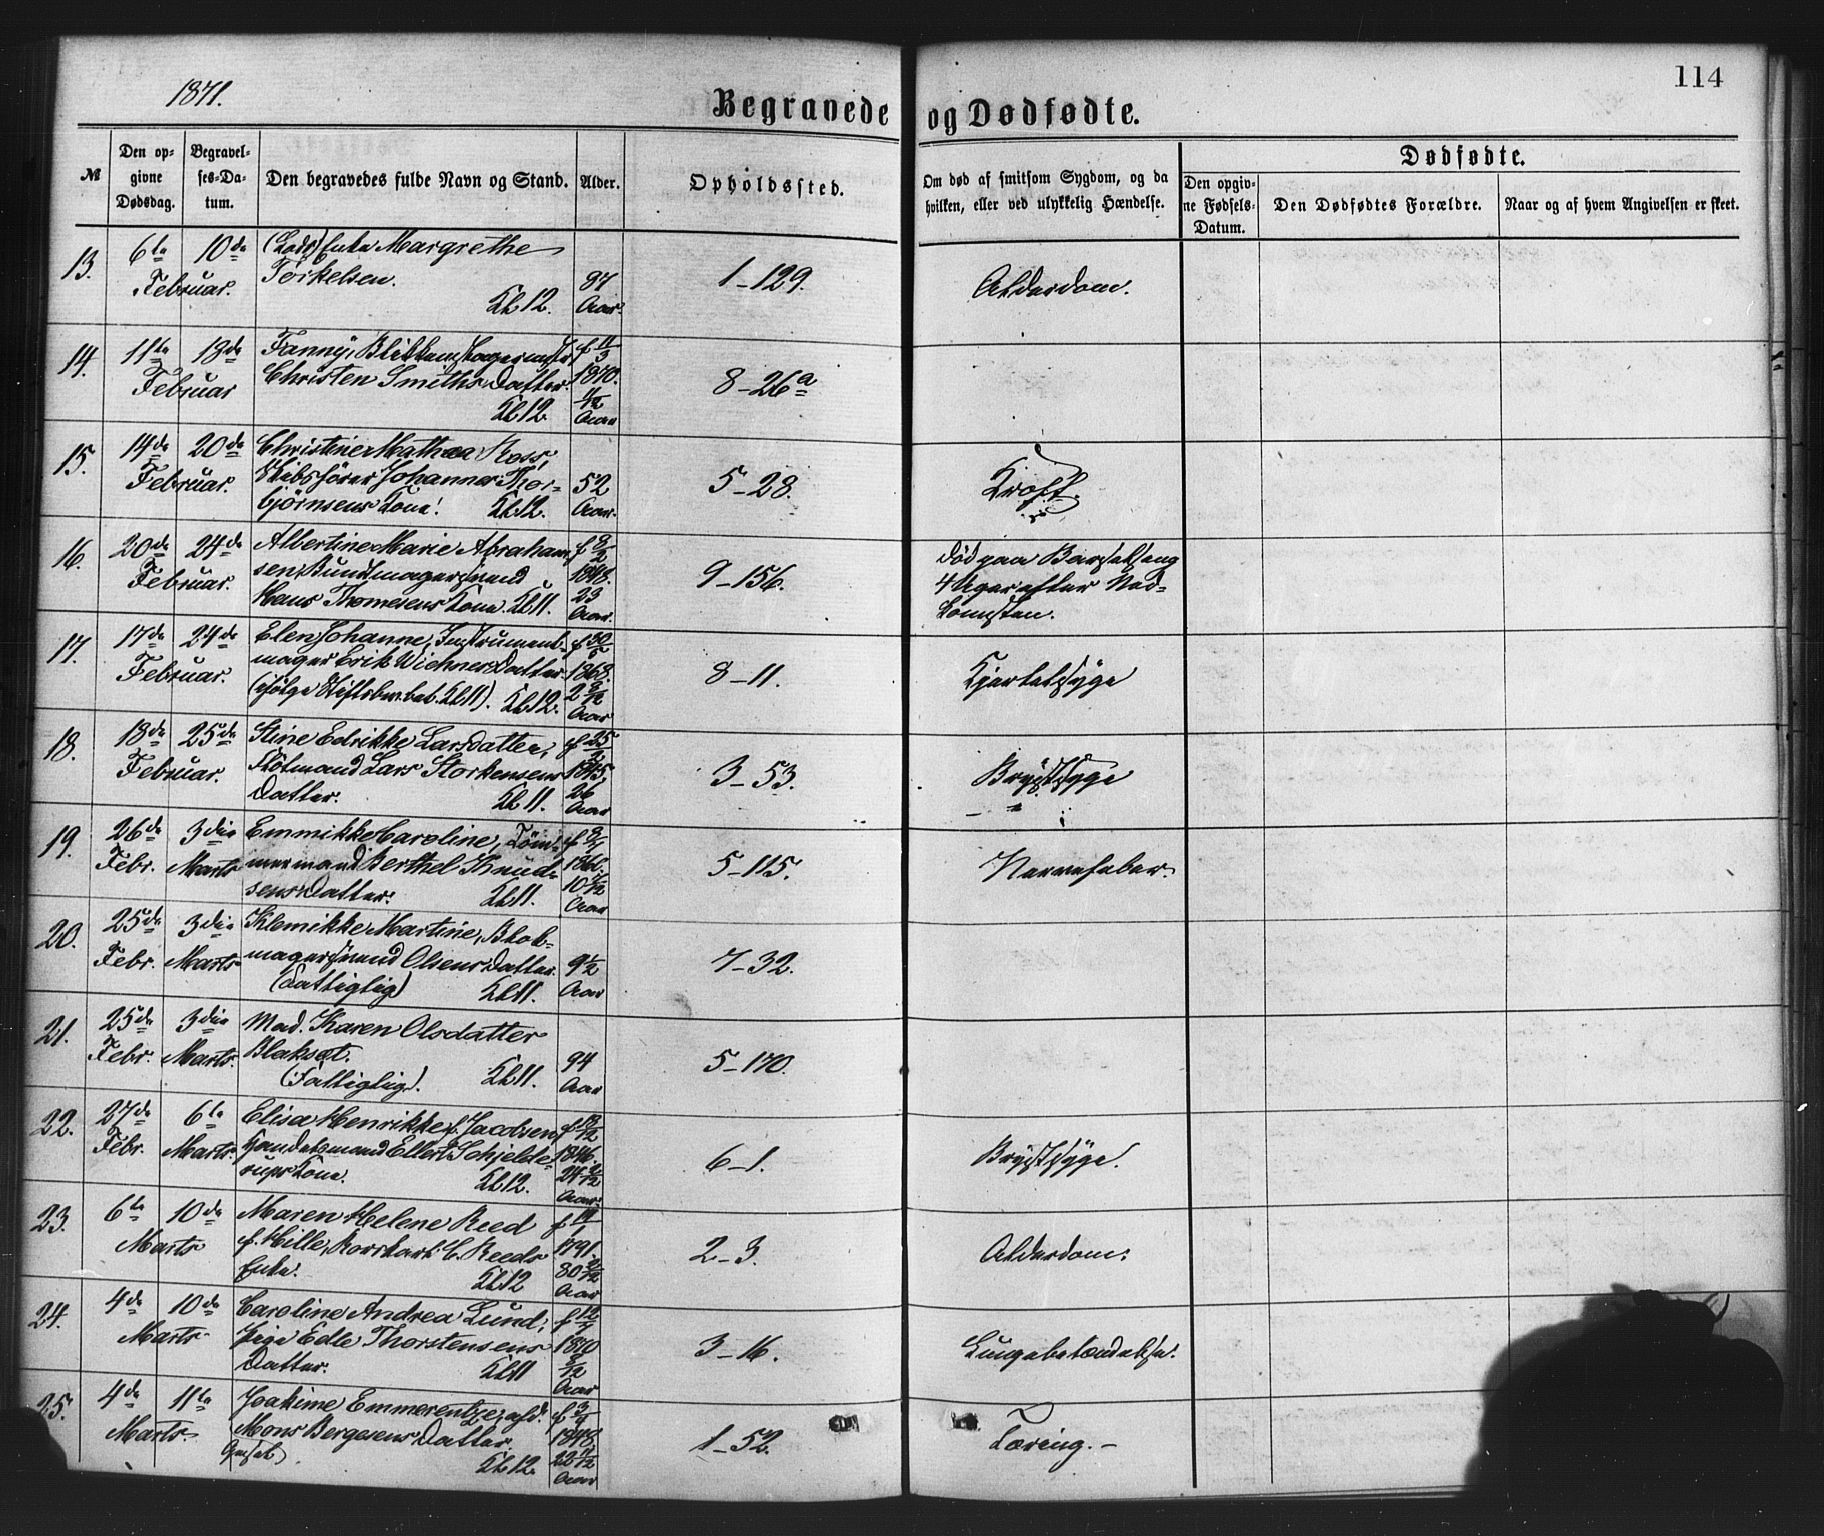 1871.
Begravede og Dødfødte.
114
№
Den opgivne Dødsdag.
Begravelses-Datum.
Den begravedes fulde Navn og Stand.
Alder.
Opholdssted.
Om død af smitsom Sygdom, og da hvilken, eller ved ulykkelig Hændelse.
Dødfødte.
Den opgivne Fødsels-Datum.
Den Dødfødtes Forældre.
Naar og af hvem Angivelsen er skeet.
13. 6te 10de Februar. Enke Margrethe
Torkelsen. Kl 12. Aar. 1-129. Alderdom.
14. 11te 18de Februar Fanny, Blikkenslagermstr
Christen Smiths Datter. Kl 12. f 11/3 1870. 11/12 Aar 8-26a
15. 14de 20de Februar. Christine Mathea Ross,
Skibsfører Johannes Thor-
bjørnsens Kone. Kl 12. 52 Aar. 5-28. Kræft.
16. 20de 24de Februar. Albertine Marie Abraham-
sen, Buntmagersvend
Hans Thomesens Kone. Kl 11. f 8/2 1848. 23 Aar. 9-156. død paa Barselseng
4 Uger efter Ned-
komsten.
17. 17de 24de Februar. Elen Johanne, Instrument-
mager Erik Wichners Datter.
(ifølge Kl 11). Kl 12. f 30/5 1868. 2 9/12 Aar 8-11. Kjertelsyge
18. 18de 25de Februar. Stine Edrikke Larsdatter,
Lars Storkensens
Datter. Kl 11. f 25/2 1845, 26 Aar 3-53. Brystsyge
19. 26de Febr. 3die Marts Emmikke Caroline, Töm-
mermand Berthel Knud-
sens Datter. Kl 11. Aar 5-115. Nervefeber.
20. 25de Febr. 3die Marts Klemikke Martine, Blok-
magersvend Olsens Datter.
(Fattiglig) Kl 11. 9 1/2 Aar 7-32.
21. 25de Febr. 3die Marts. Mad. Karen Olsdatter
Blaksæt.
(Fattiglig). Kl 11. 94 Aar 5-170.
22. 27de Febr. 6te Marts. Elisa Henrikke f. Jacobsen,
Handelsmand Ellert Schjelde-
rups Kone. Kl 12. 1846. Aar. 6-1. Brystsyge.
23. 6te 10de Marts Maren Helene Reed
f. Hille, C. Reeds
Enke. Kl 12 1791. Aar 2-3. Alderdom.
24. 4de 10de Marts. Caroline Andrea Lund,
Pige Edle Thorstensens
Datter. Kl 11 f 12/7 1870 8/12 Aar 3-16. Lungebetændelse.
25. 4de 11te Marts. Joakime Emmerentze, afd.
Mons Bergesens Datter.
Kl 12. f 3/9 1848 Aar 1-52. Tæring.-